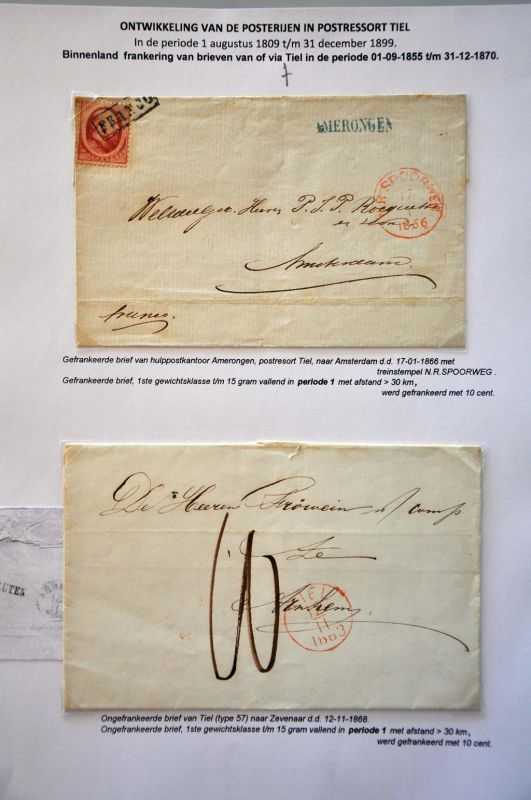 ONTWIKKELING VAN DE POSTERIJEN IN POSTRESSORT TIEL
In de periode 1 augustus 1809 t/m 31 december 1899.
Binnenland frankering van brieven van of via Tiel in de periode 01-09-1855 t/m 31-12-1870.
FRANCO
AMERONGEN
N.R. SPOORWEG
1866
Weledelgeb. Heeren P. J. P.
Amsterdam
franco
Gefrankeerde brief van hulppostkantoor Amerongen, postresort Tiel, naar Amsterdam d.d. 17-01-1866 met
treinstempel N.R.SPOORWEG .
Gefrankeerde brief, 1ste gewichtsklasse t/m 15 gram vallend in periode 1 met afstand > 30 km,
werd gefrankeerd met 10 cent.
De Heeren Fröwein & comp
Te
Arnhem
10
TIEL
12
11
1863
UTEN
Ongefrankeerde brief van Tiel (type 57) naar Zevenaar d.d. 12-11-1868.
Ongefrankeerde brief, 1ste gewichtsklasse t/m 15 gram vallend in periode 1 met afstand > 30 km,
werd gefrankeerd met 10 cent.